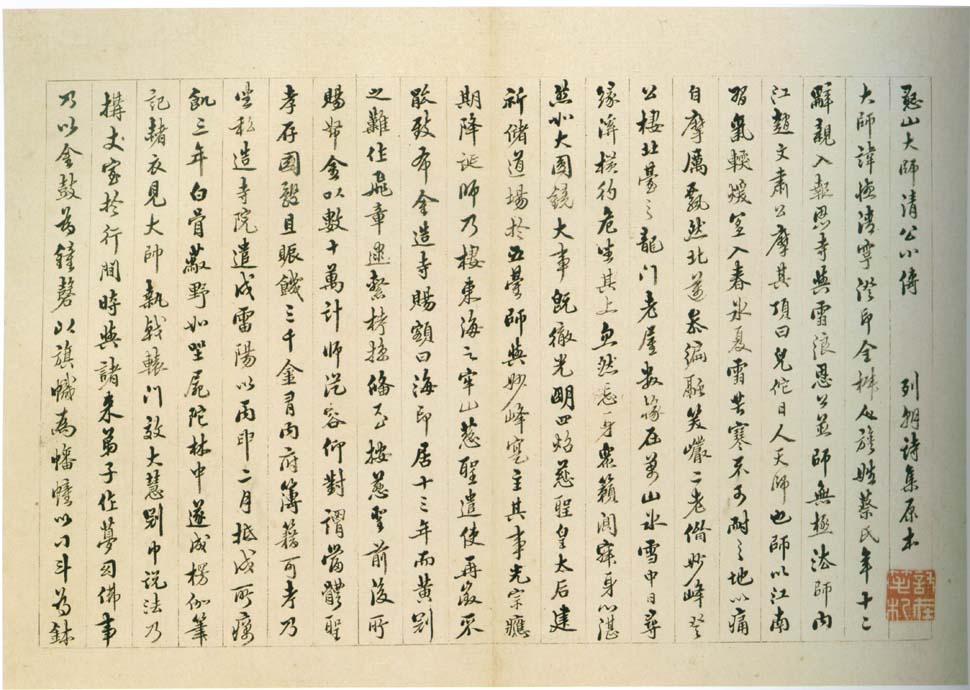 憨山大師清公小傳 列朝詩集原本
大師諱德清字澄印全椒人族姓蔡氏年十二
辭親入報恩寺與雪浪恩公並師無極法師內
江趙文肅公摩其頂曰兒佗日人天師也師以江南
習氣輭煖宜入春冰夏雪苦寒不可耐之地以痛
自摩厲飄然北邁參徧融笑巖二老偕妙峰登
公棲北臺之龍門老屋數椽在萬山冰雪中日尋
緣溪橫彴危坐其上忽然忘身衆籟闃寂身心湛
然如大圓鏡大事既徹光明四焰慈聖皇太后建
祈儲道場於五臺師與妙峰寔主其事光宗應
期降誕師乃棲東海之牢山慈聖遣使再徵不
能致布金造寺賜額曰海印居十三年而黃冠
之難作飛章逮繫拷掠備至按慈聖前後所
賜帑金以數十萬計師從容仰對謂當體聖
孝存國體且賑饑三千金有內府簿籍可考乃
坐私造寺院遣戍雷陽以丙申二月抵戍所癘
飢三年白骨蔽野如坐屍陀林中遂成楞伽筆
記赭衣見大師執戟轅門效大慧冠巾說法乃
搆丈室於行間時與諸來弟子作夢幻佛事
乃以金鼓為鐘磬以旗幟為幡幢以刁斗為鉢